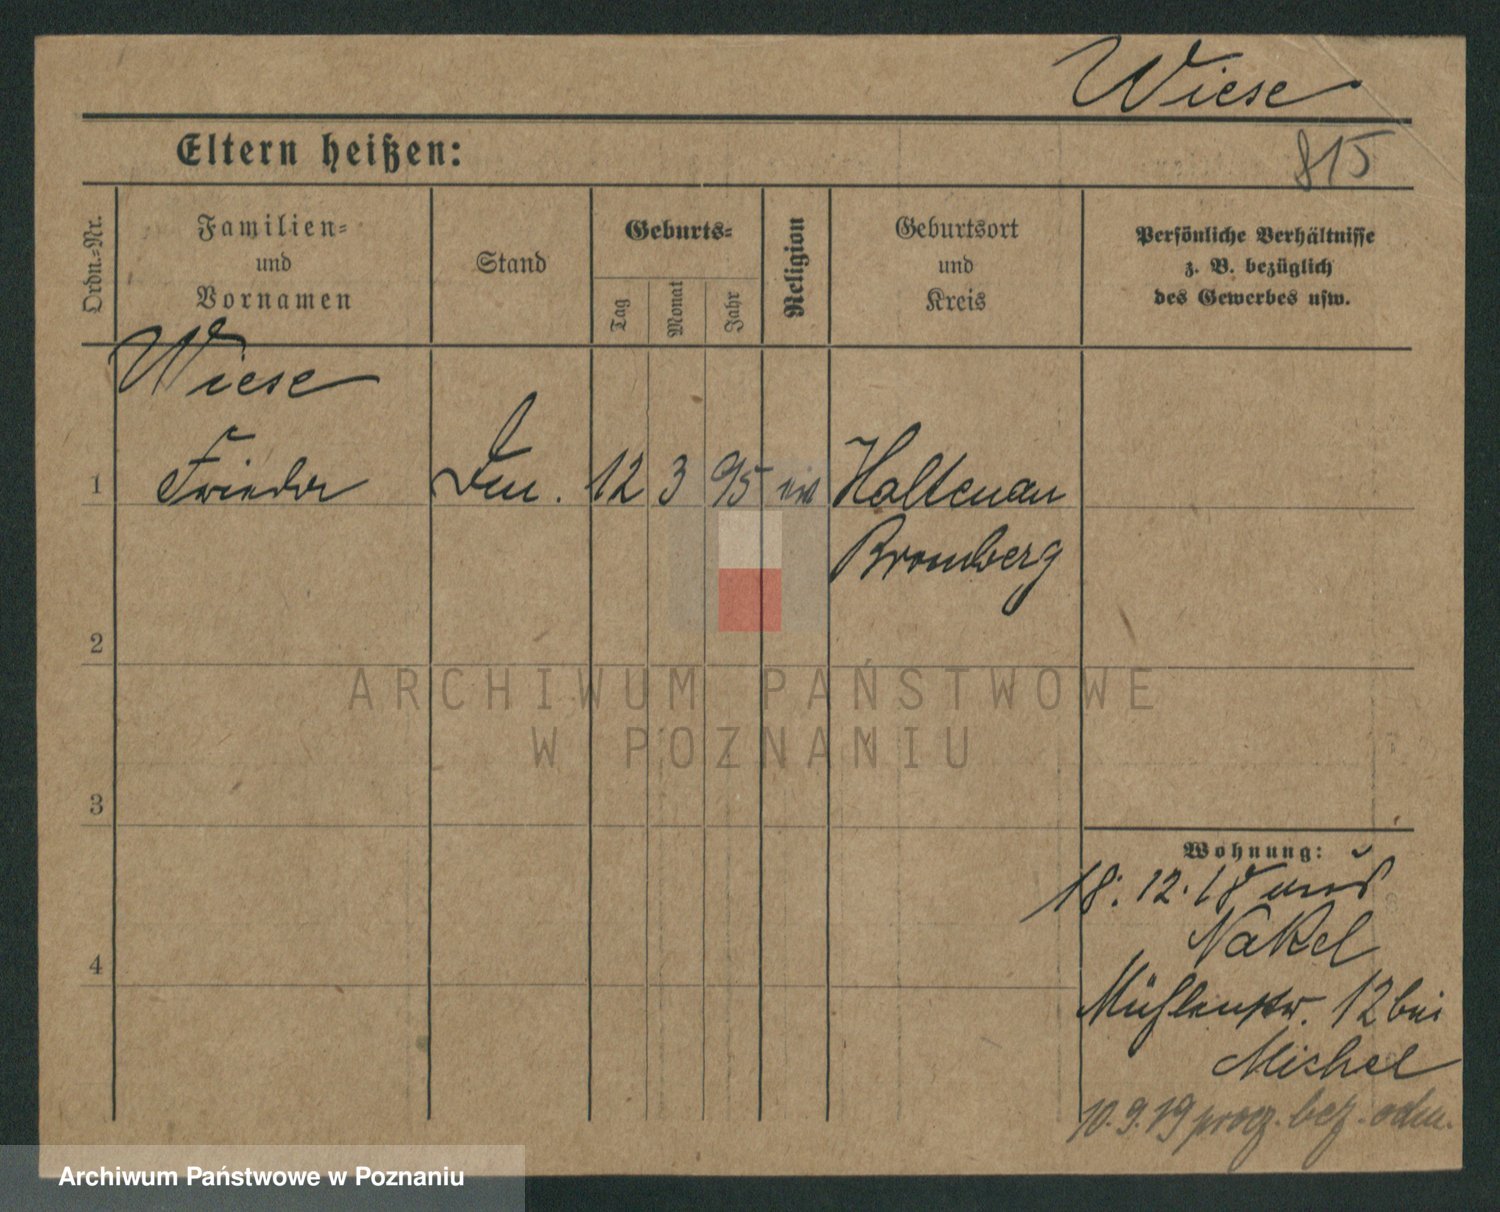 Wiese
815
Eltern heißen:
Ordn.-Nr.
Familien-
und
Vornamen
Stand
Geburts-
Tag
Monat
Jahr
Religion
Geburtsort
und
Kreis
Persönliche Verhältnisse
z. B. bezüglich
des Gewerbes usw.
Wiese
1 12 3 95 Haltenau
Bromberg
2
3
4
Wohnung:
18. 12. 18
Nakel
Mühlenstr. 12 bei
Michel
10. 9. 19
ARCHIWUM PAŃSTWOWE
W POZNANIU
Archiwum Państwowe w Poznaniu